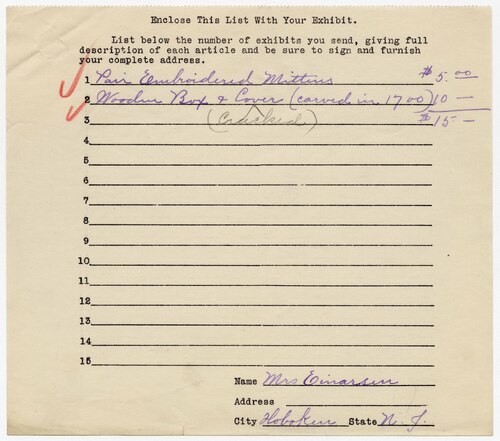 Enclose This List With Your Exhibit.
List below the number of exhibits you send, giving full
description of each article and be sure to sign and furnish
your complete address.
1 Pair Embroidered Mittens $5.00
2 Wooden Box & Cover (carved in 1700) 10 —
3 (Cracked) $15 —
4
5
6
7
8
9
10
11
12
13
14
15
Name Mrs Einarsen
Address
City Hoboken State N. J.